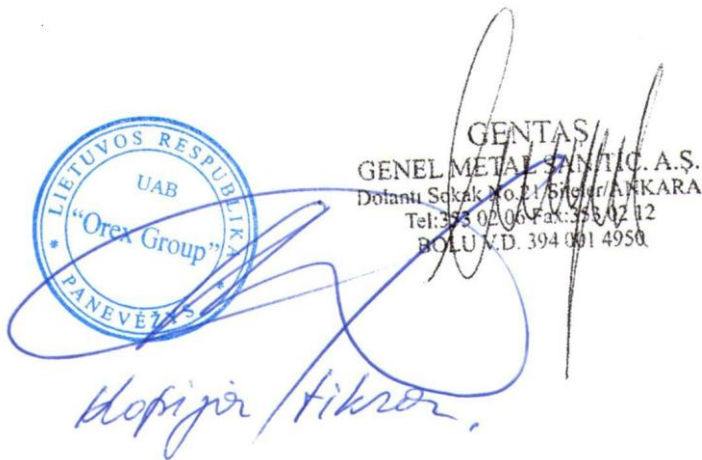 LIETUVOS RESPUBLIKA
UAB
“Orex Group”
* PANEVĖŽYS *
GENTAŞ
GENEL METAL SAN.TİC. A.Ş.
Dolantı Sokak No.21 Siteler/ANKARA
Tel:353 02 06 Fax:353 02 12
BOLU V.D. 394 001 4950
Kopija tikra.